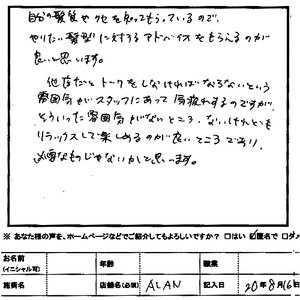 自分の髪質やクセを知ってもらっているので、
やりたい髪型に対するアドバイスをもらえるのが
良いと思います。
他店だとトークをしなければならないという
雰囲気がスタッフにあって肩疲れするのですが
そういった雰囲気がないところ、ないけれども
リラックスして楽しめるのが良いところであり、
必要なものじゃないかと思います。
※ あなた様の声を、ホームページなどでご紹介してもよろしいですか? □はい ☑匿名で □ダメ
お名前
(イニシャル可)
年齢
職業
施術名
店舗名(必須)
ALAN
記入日
20年8月16日